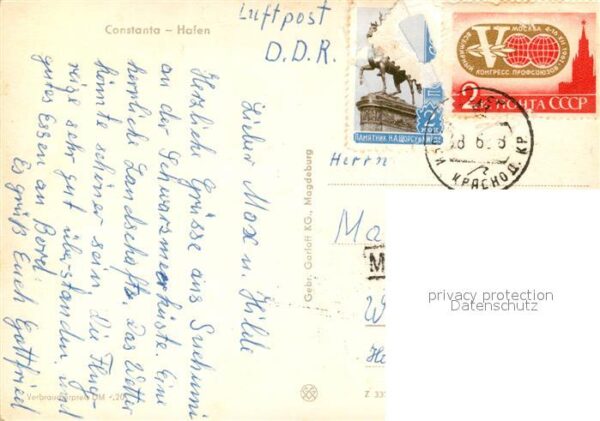 Constanta – Hafen
Luftpost
D.D.R.
Lieber Max u. Hilde
Herzliche Grüsse aus Suchumi
an der Schwarzmeerküste. Eine
herrliche Landschaft. Das Wetter
könnte schöner sein. Die Flug-
reise sehr gut überstanden und
gutes Essen an Bord.
Es grüßt Euch Gottfried
Verbraucherpreis DM -,20
Gebr. Garloff KG., Magdeburg
Z 33
ПАМЯТНИК Н.А.ЩОРСУ
2
КОП
V
МОСКВА 4-16.XII.1961
ВСЕМИРНЫЙ КОНГРЕСС ПРОФСОЮЗОВ
2 К ПОЧТА СССР
КРАСНОД. КР.
Herrn
Ma
M
W
privacy protection
Datenschutz